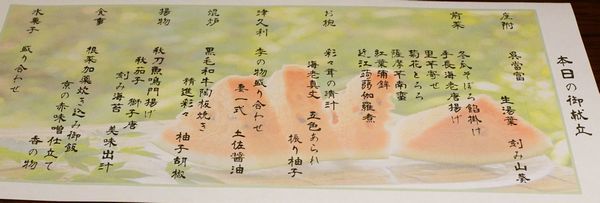 本日の御献立
座附
異富富
生湯葉
刻み山葵
前菜
冬瓜そぼろ餡掛け
手長海老唐揚げ
里芋寄せ
菊花とろろ
薩摩芋南蛮
紅葉蒲鉾
近江蒟蒻伽羅煮
お椀
彩々茸の清汁
海老真丈
五色あられ
振り柚子
津久利
季の物盛り合わせ
妻一式
土佐醤油
焜炉
黒毛和牛陶板焼き
精選彩々
柚子胡椒
揚物
秋刀魚鳴門揚げ
秋茄子
獅子唐
刻み海苔
美味出汁
食事
根菜加薬炊き込み御飯
京の赤味噌仕立て
香の物
水菓子
盛り合わせ